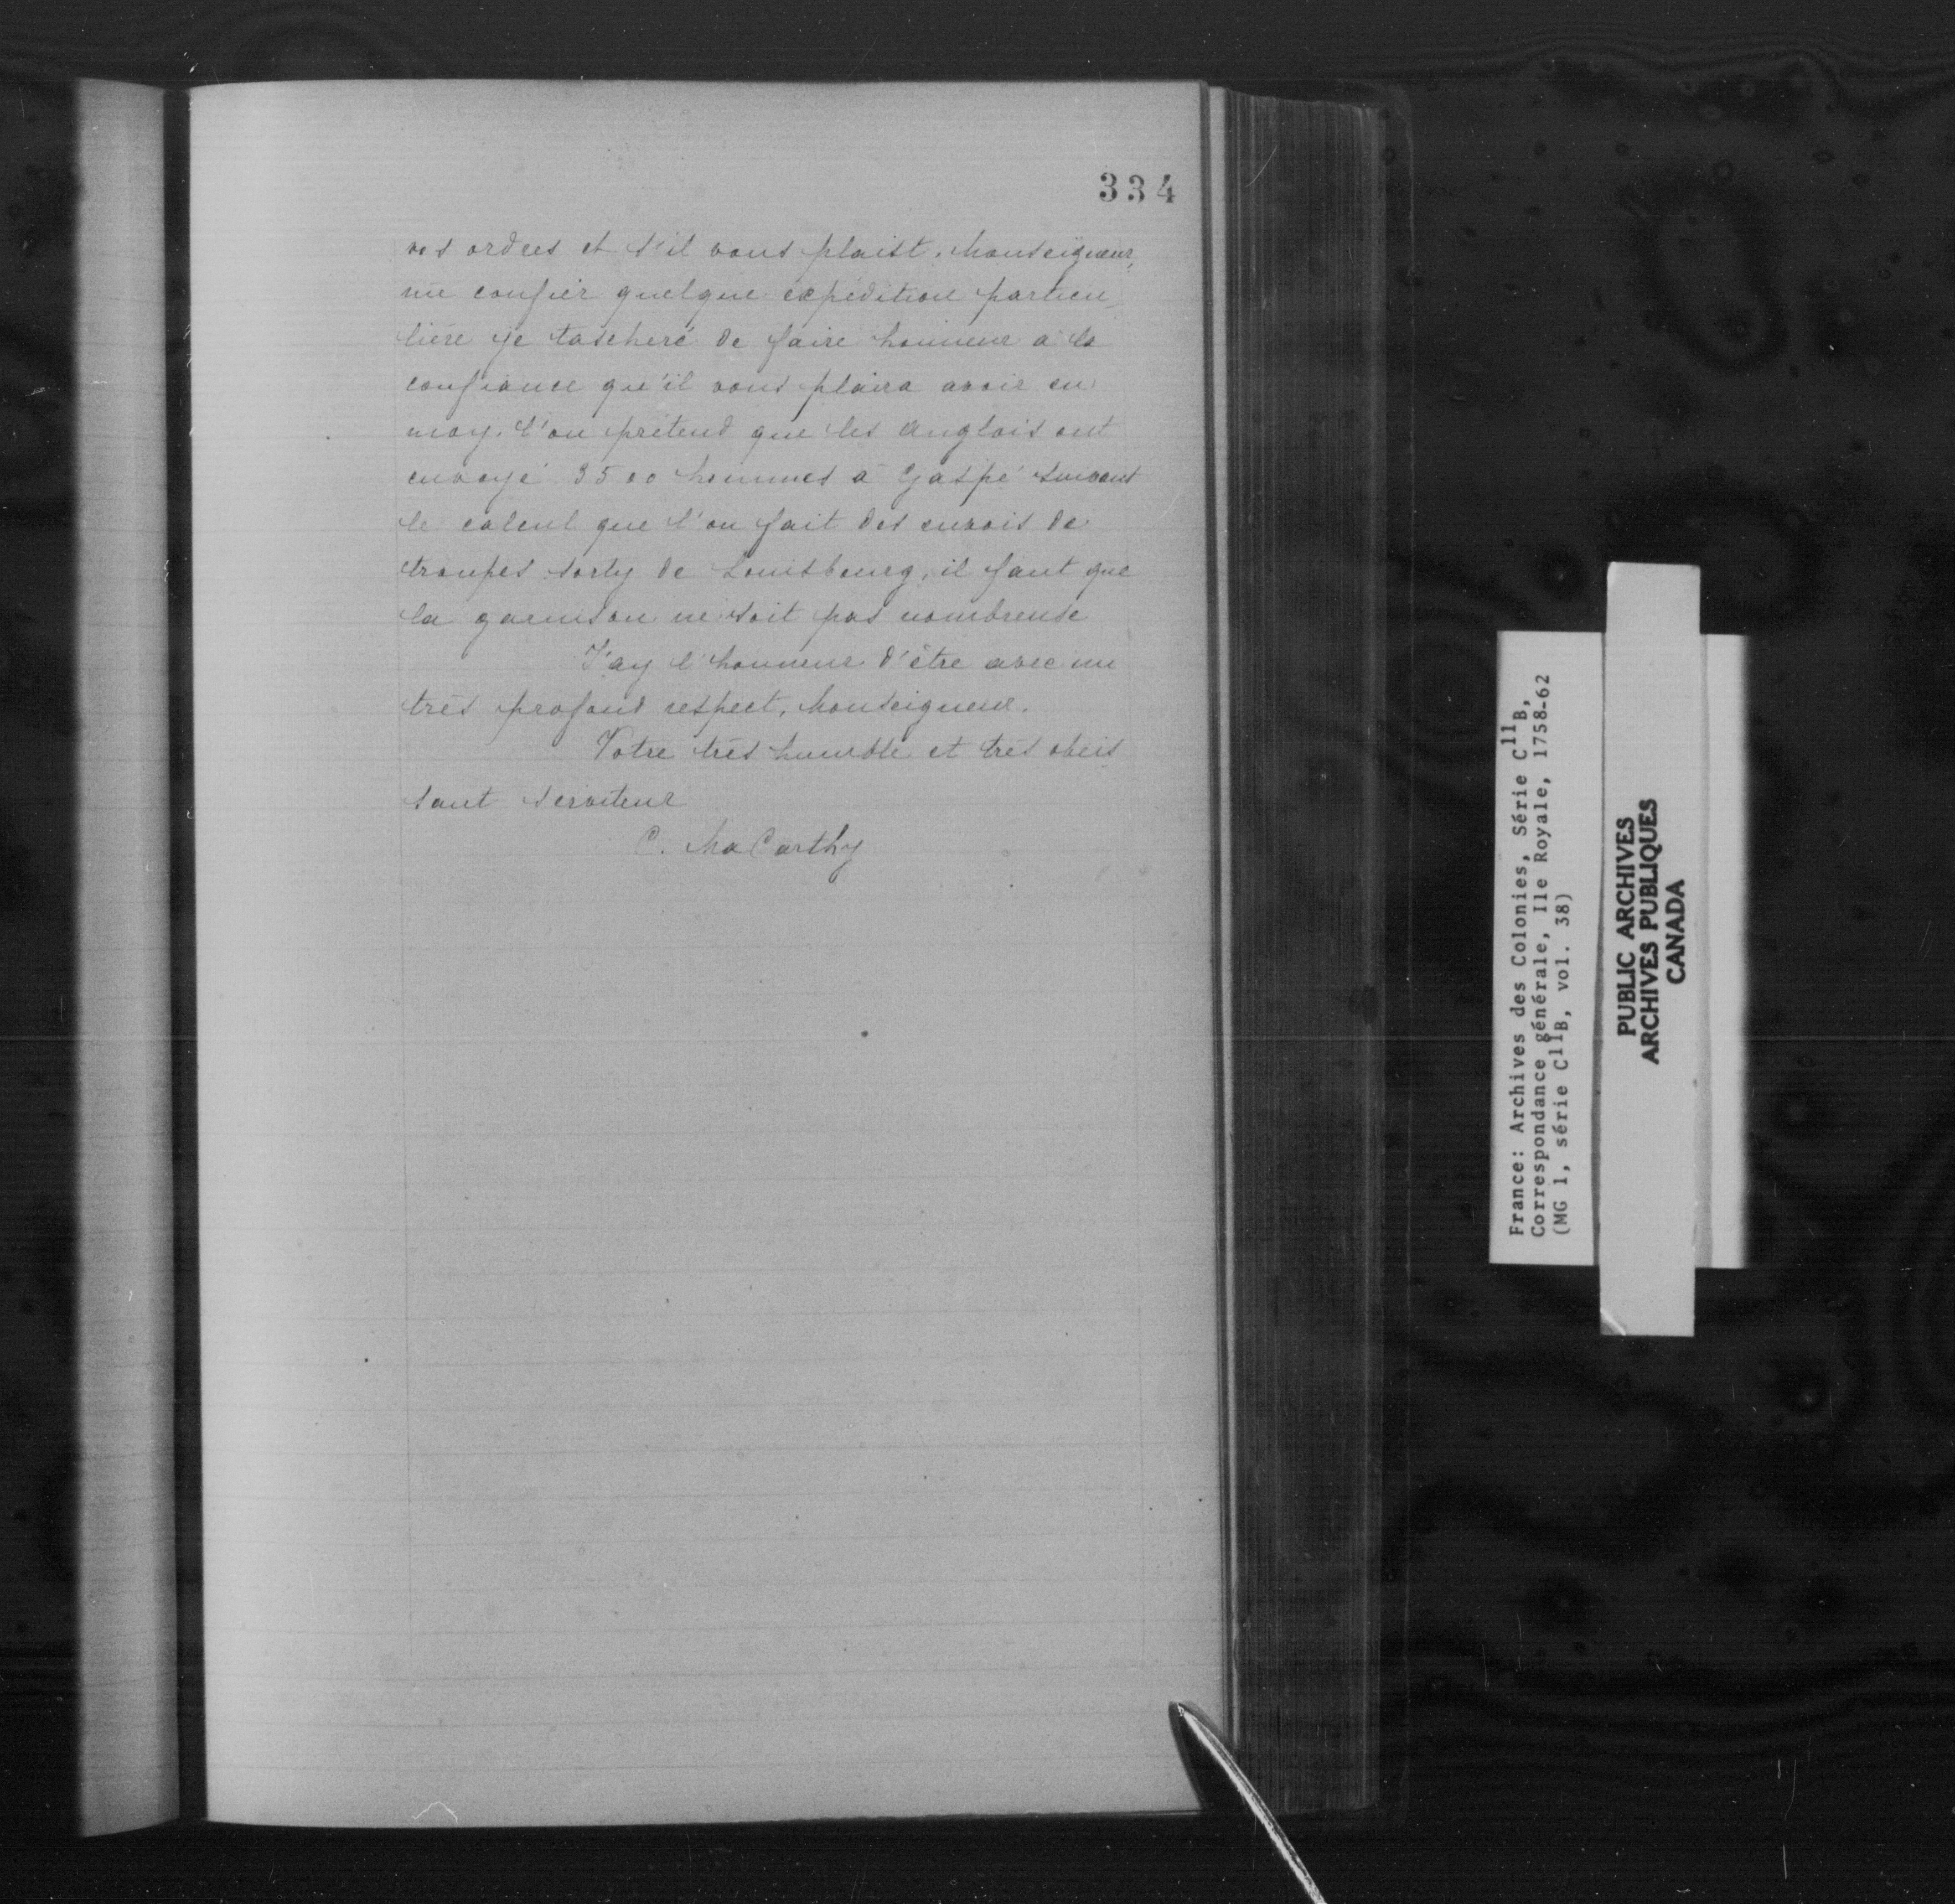 334
vos ordres et s'il vous plaist, Monseigneur,
me confier quelque expédition particu_
lière je tascheré de faire honneur à la
confiance qu'il vous plaira avoir en
moy. l'on prétend que les anglois ont
envoyé 3500 hommes à Gaspé suivant
le calcul que l'on fait des envois de
troupes sorty de Louisbourg, il faut que
la garnison ne soit pas nombreuse
J'ay l'honneur d'être avec un
très profond respect, Monseigneur.
Votre très humble et très obéis
sant serviteur
C. MaCarthy
France: Archives des Colonies, Série C11B,
Correspondance générale, Ile Royale, 1758-62
(MG 1, série C11B, vol. 38)
PUBLIC ARCHIVES
ARCHIVES PUBLIQUES
CANADA